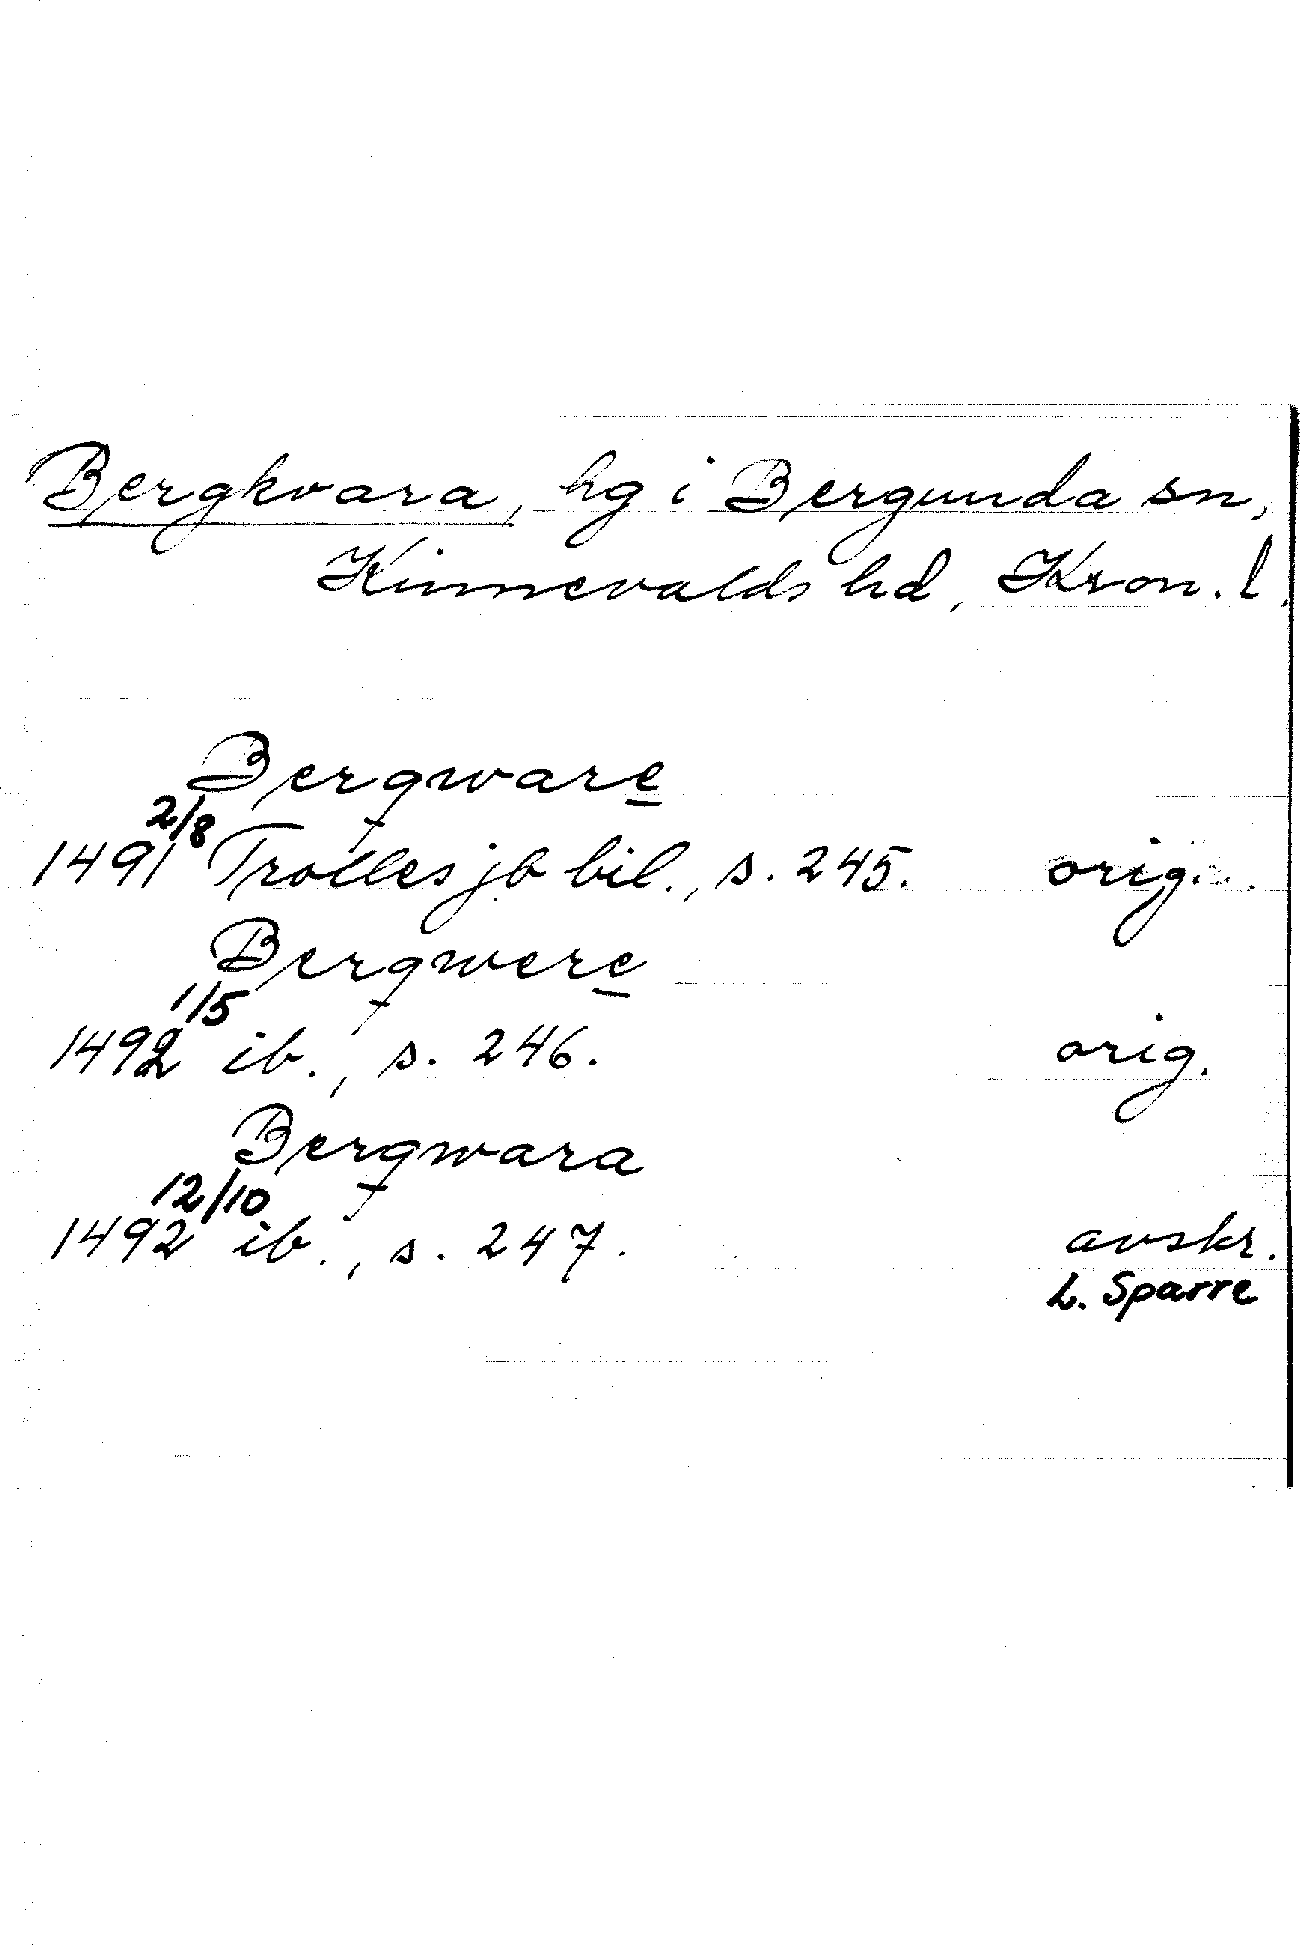 Bergkvara, hg i Bergunda sn,
Kinnevalds hd, Kron. l.
Bergqware
2/8
1491 Trolles jb bil., s. 245. orig.
Bergqwere
1/5
1492 ib., s. 246. orig.
Bergqwara
12/10
1492 ib., s. 247. avskr.
L. Sparre